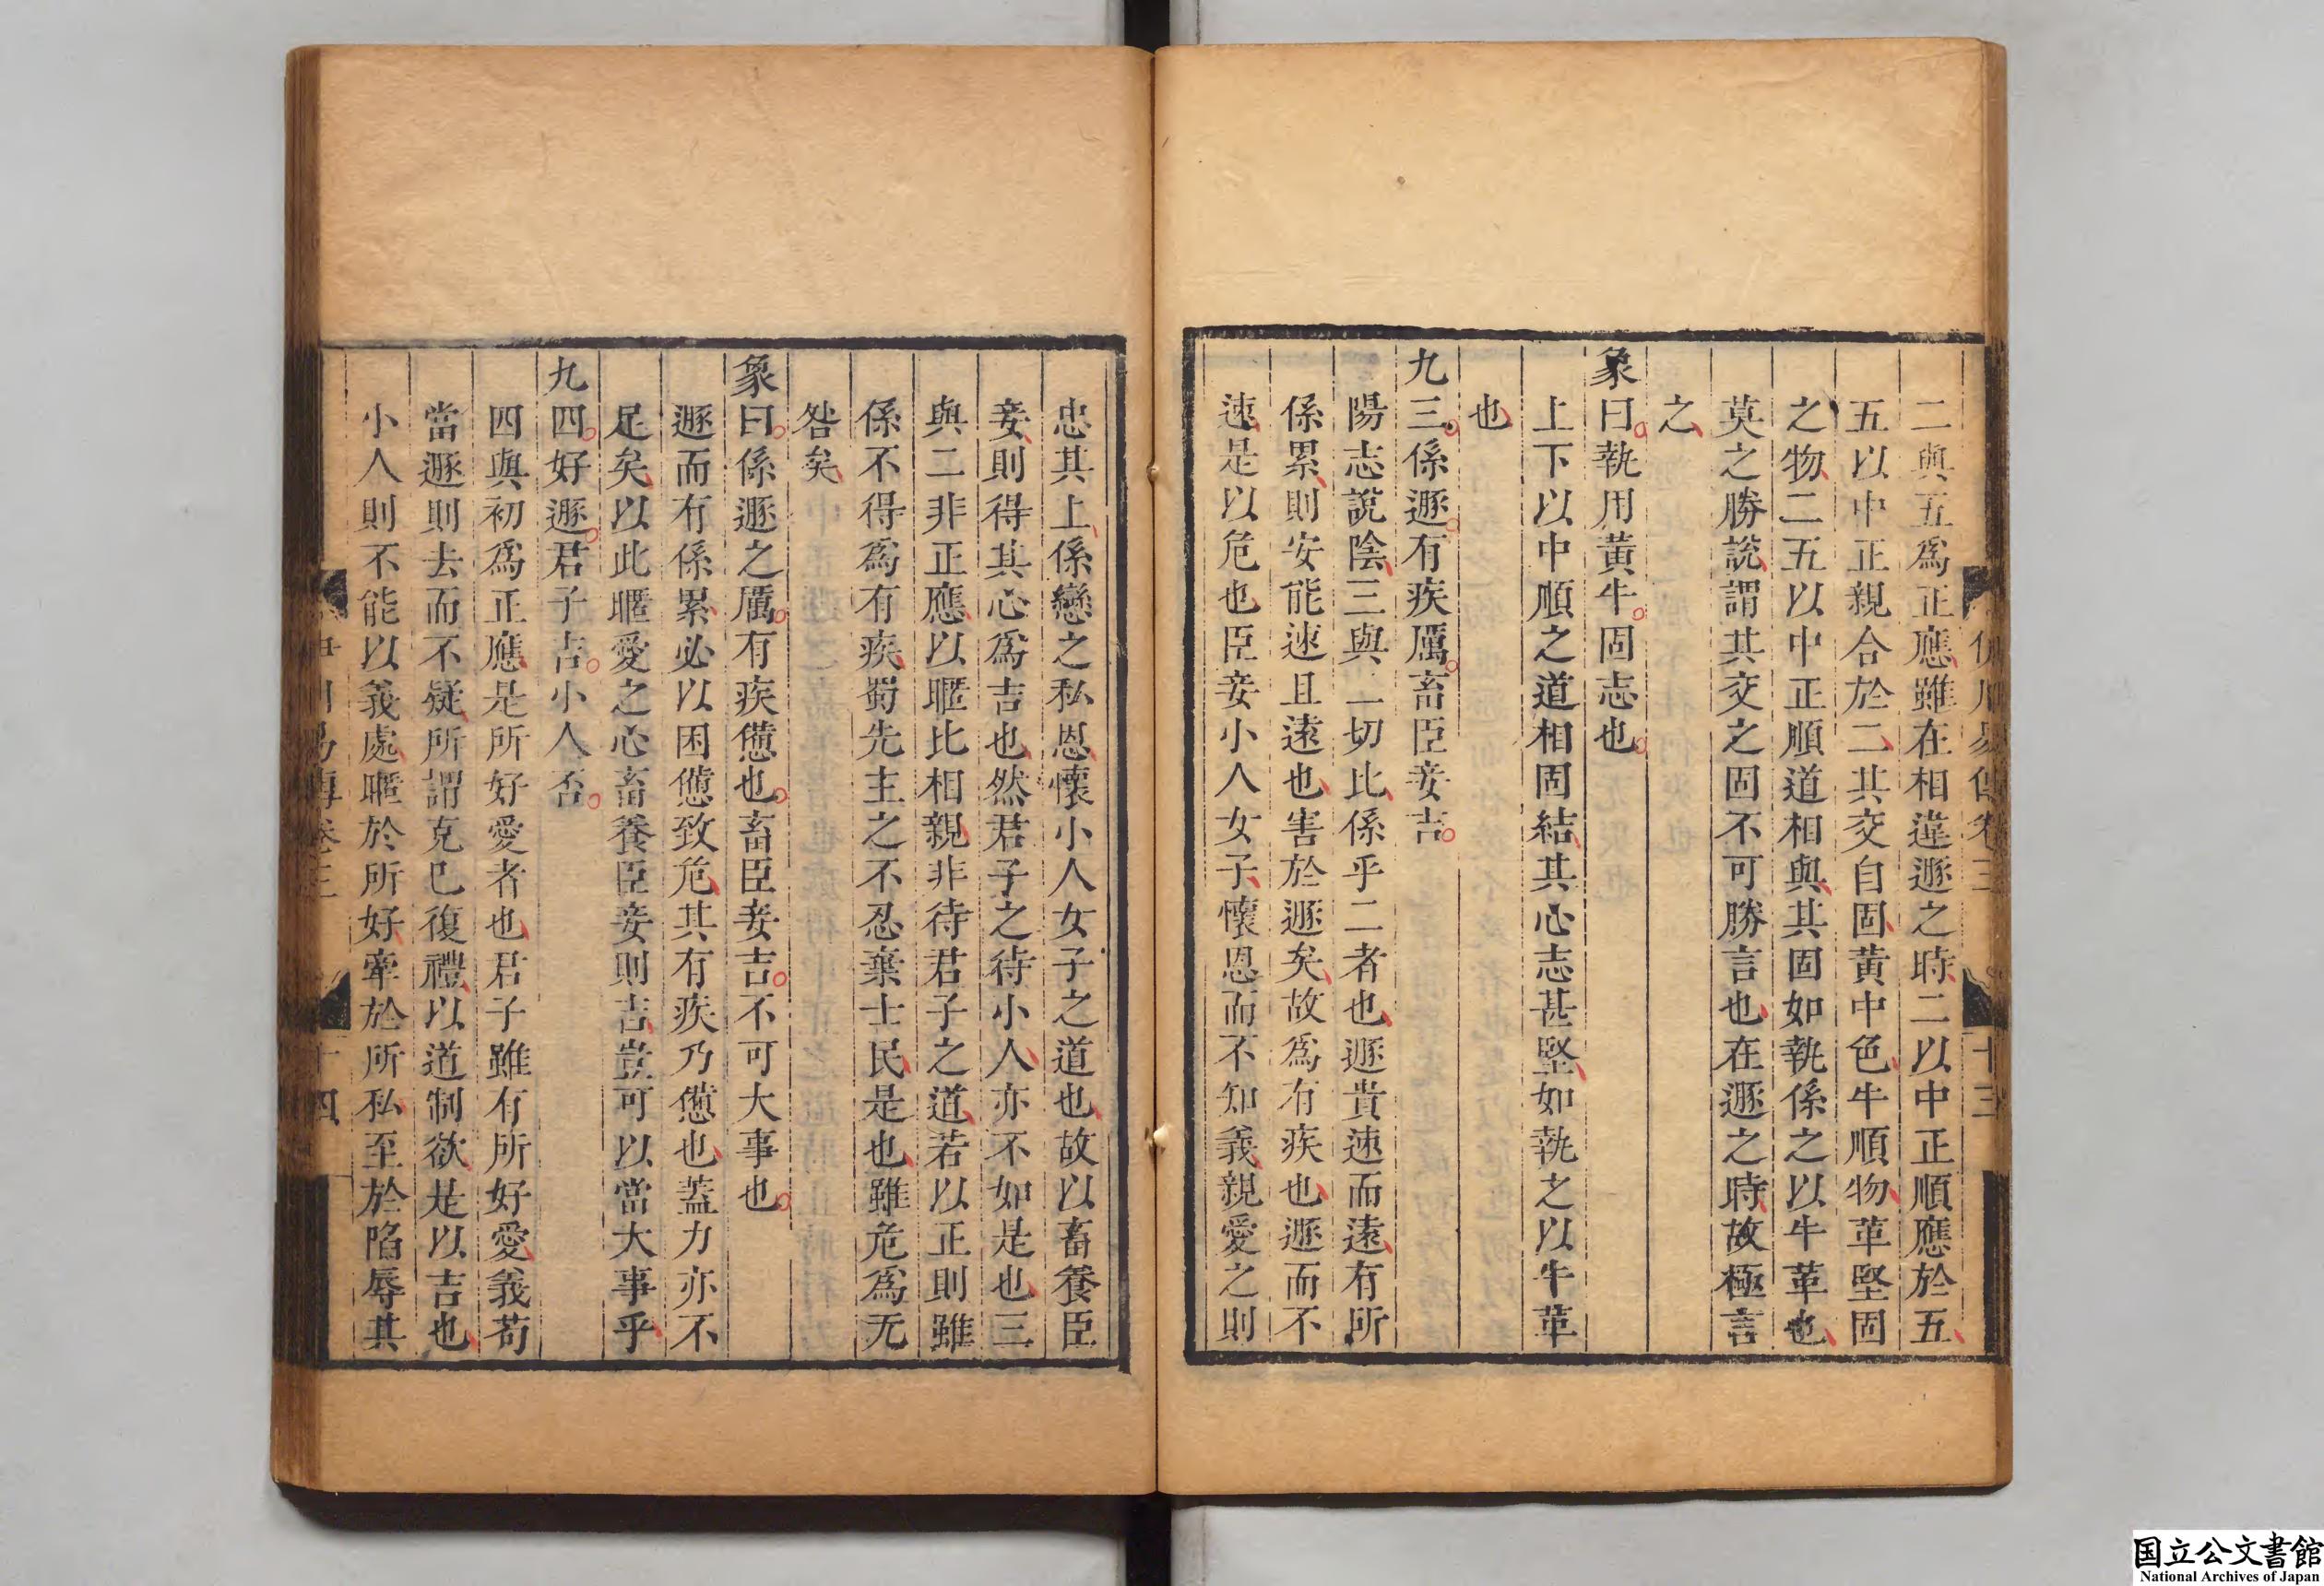 伊川易傳卷三 十三
二與五爲正應雖在相違遯之時二以中正順應於五
五以中正親合於二其交自固黃中色牛順物革堅固
之物二五以中正順道相與其固如執係之以牛革也
莫之勝說謂其交之固不可勝言也在遯之時故極言
之
象曰執用黃牛固志也
上下以中順之道相固結其心志甚堅如執之以牛革
也
九三係遯有疾厲畜臣妾吉
陽志說陰三與二切比係乎二者也遯貴速而遠有所
係累則安能速且遠也害於遯矣故爲有疾也遯而不
速是以危也臣妾小人女子懷恩而不知義親愛之則
忠其上係戀之私恩懷小人女子之道也故以畜養臣
妾則得其心爲吉也然君子之待小人亦不如是也三
與二非正應以暱比相親非待君子之道若以正則雖
係不得爲有疾蜀先主之不忍棄士民是也雖危爲无
咎矣
象曰係遯之厲有疾憊也畜臣妾吉不可大事也
遯而有係累必以困憊致危其有疾乃憊也蓋力亦不
足矣以此暱愛之心畜養臣妾則吉豈可以當大事乎
九四好遯君子吉小人否
四與初爲正應是所好愛者也君子雖有所好愛義苟
當遯則去而不疑所謂克己復禮以道制欲是以吉也
小人則不能以義處暱於所好牽於所私至於陷辱其
伊川易傳卷三 十四
国立公文書館
National Archives of Japan